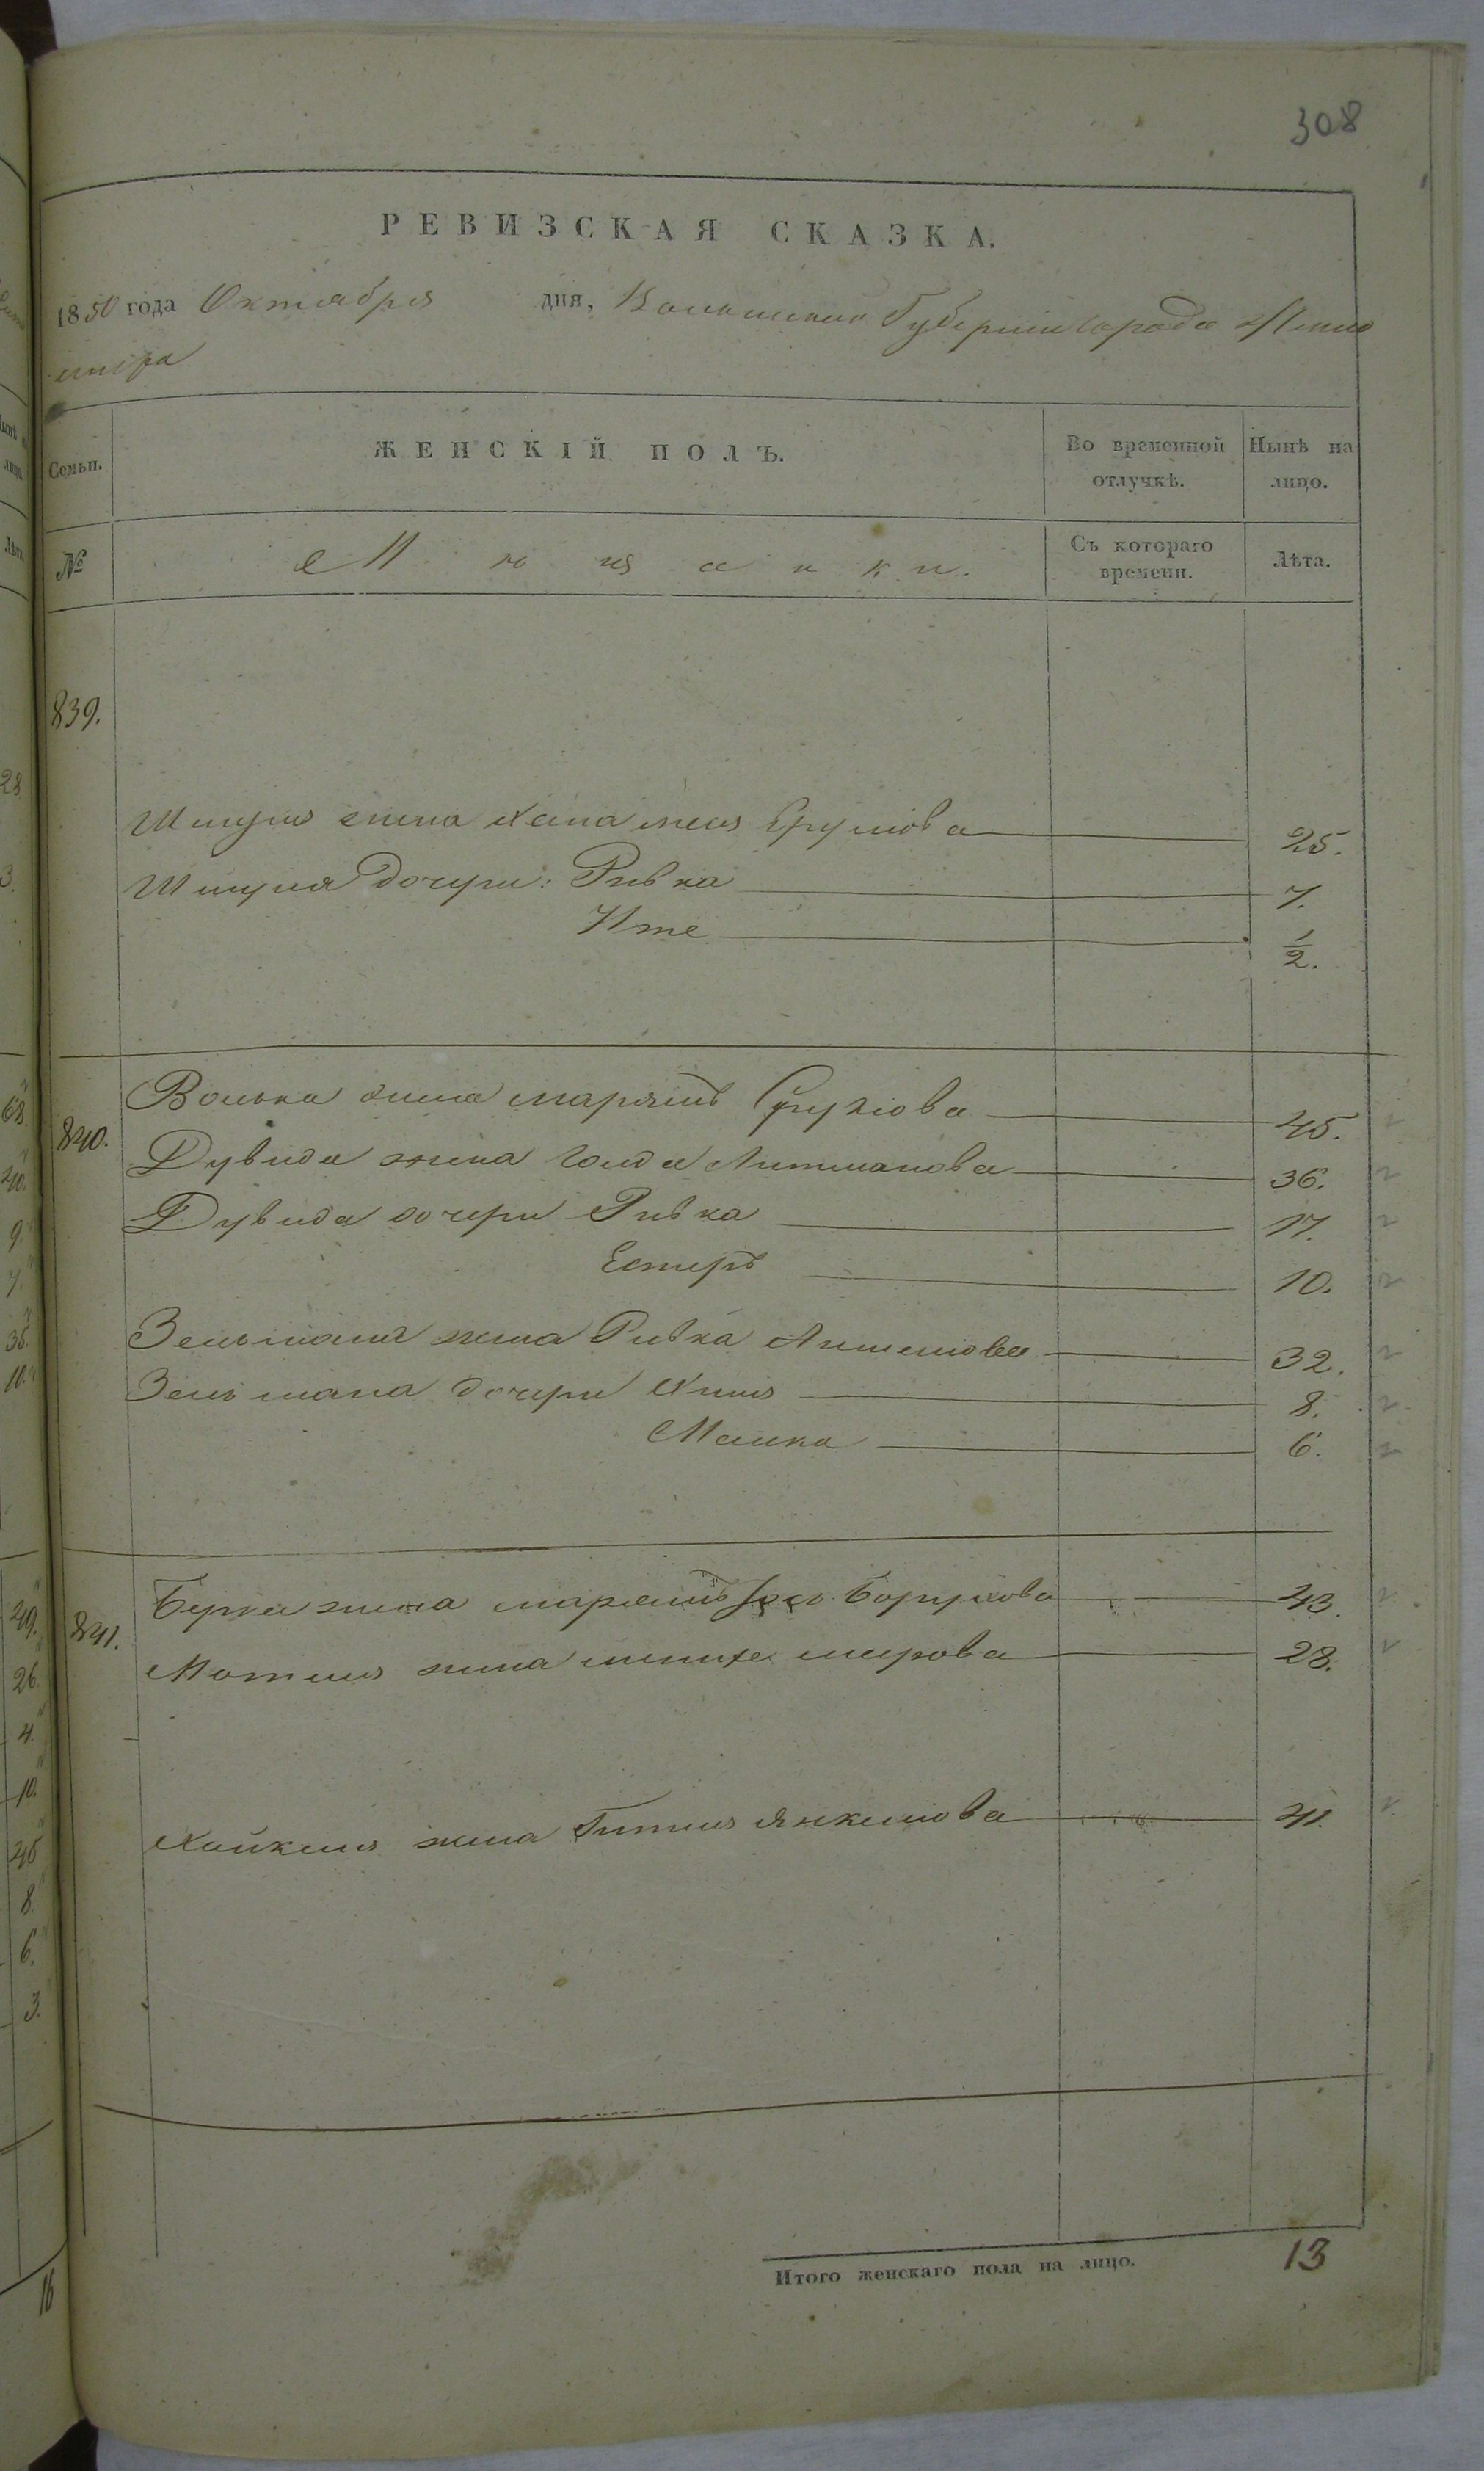 308
РЕВИЗСКАЯ СКАЗКА.
1850 года Октября дня, Волынской Губернии города Жито
мира
Семьи. ЖЕНСКІЙ ПОЛЪ. Во временной отлучкѣ. Нынѣ на лицо.
№ Мѣщанки. Съ котораго времени. Лѣта.
839.
Шмуля жена Хана 25.
Шмуля дочери: Ривка 7.
Ите 1/2.
840. Волька жена Марьямъ Срулiова 45.
Дувида жена Голда Литманова 36.
Дувида дочери Ривка 17.
Естеръ 10.
Зельмана жена Ривка Аншелiова 32.
Зельмана дочери 8.
Малка 6.
841. Берка жена Марьямъ Борухова 43.
Мотеля жена Меирова 28.
Хайкеля жена Гитля Янкелiова 41.
Итого женскаго пола на лицо. 13
28
3.
68.
40.
9.
7.
35.
10.
49.
26.
4.
10.
45
8.
6.
3.
16